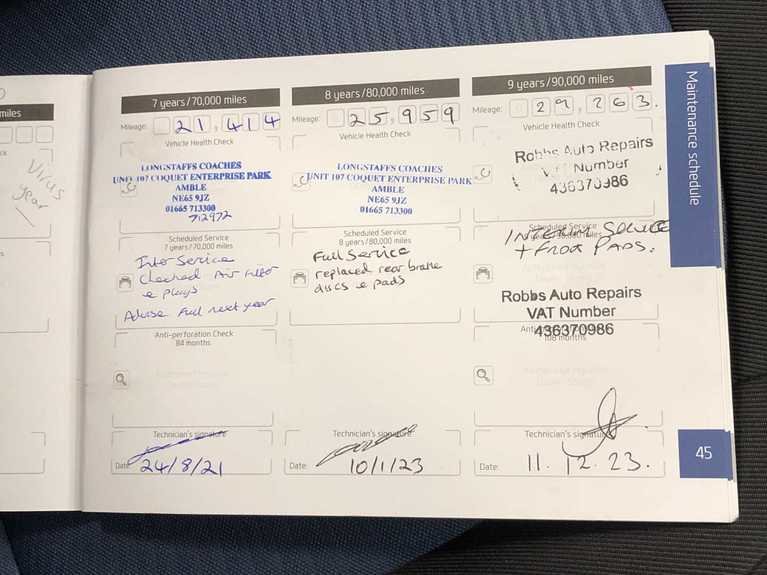 miles
Virus
year
7 years/70,000 miles
Mileage: 21,414
Vehicle Health Check
LONGSTAFFS COACHES
UNIT 107 COQUET ENTERPRISE PARK
AMBLE
NE65 9JZ
01665 713300
712972
Scheduled Service
7 years/70,000 miles
Inter Service
Checked Air filter
e plugs
Advise Full next year
Anti-perforation Check
84 months
Technician's signature
Date: 24/8/21
8 years/80,000 miles
Mileage: 25,959
Vehicle Health Check
LONGSTAFFS COACHES
UNIT 107 COQUET ENTERPRISE PARK
AMBLE
NE65 9JZ
01665 713300
Scheduled Service
8 years/80,000 miles
Full Service
replaced rear brake
discs e pads
Technician's signature
Date: 10/1/23
9 years/90,000 miles
Mileage: 29,763.
Vehicle Health Check
Robbs Auto Repairs
VAT Number
436370986
INTERIM SERVICE
+ FRONT PADS.
Robbs Auto Repairs
VAT Number
436370986
108 months
Technician's signature
Date: 11.12.23.
Maintenance schedule
45